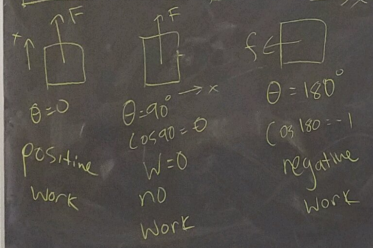 x
F
θ=0
positive
work
F
x
θ=90°
cos90=0
W=0
no
work
f
θ=180°
cos180=-1
negative
work